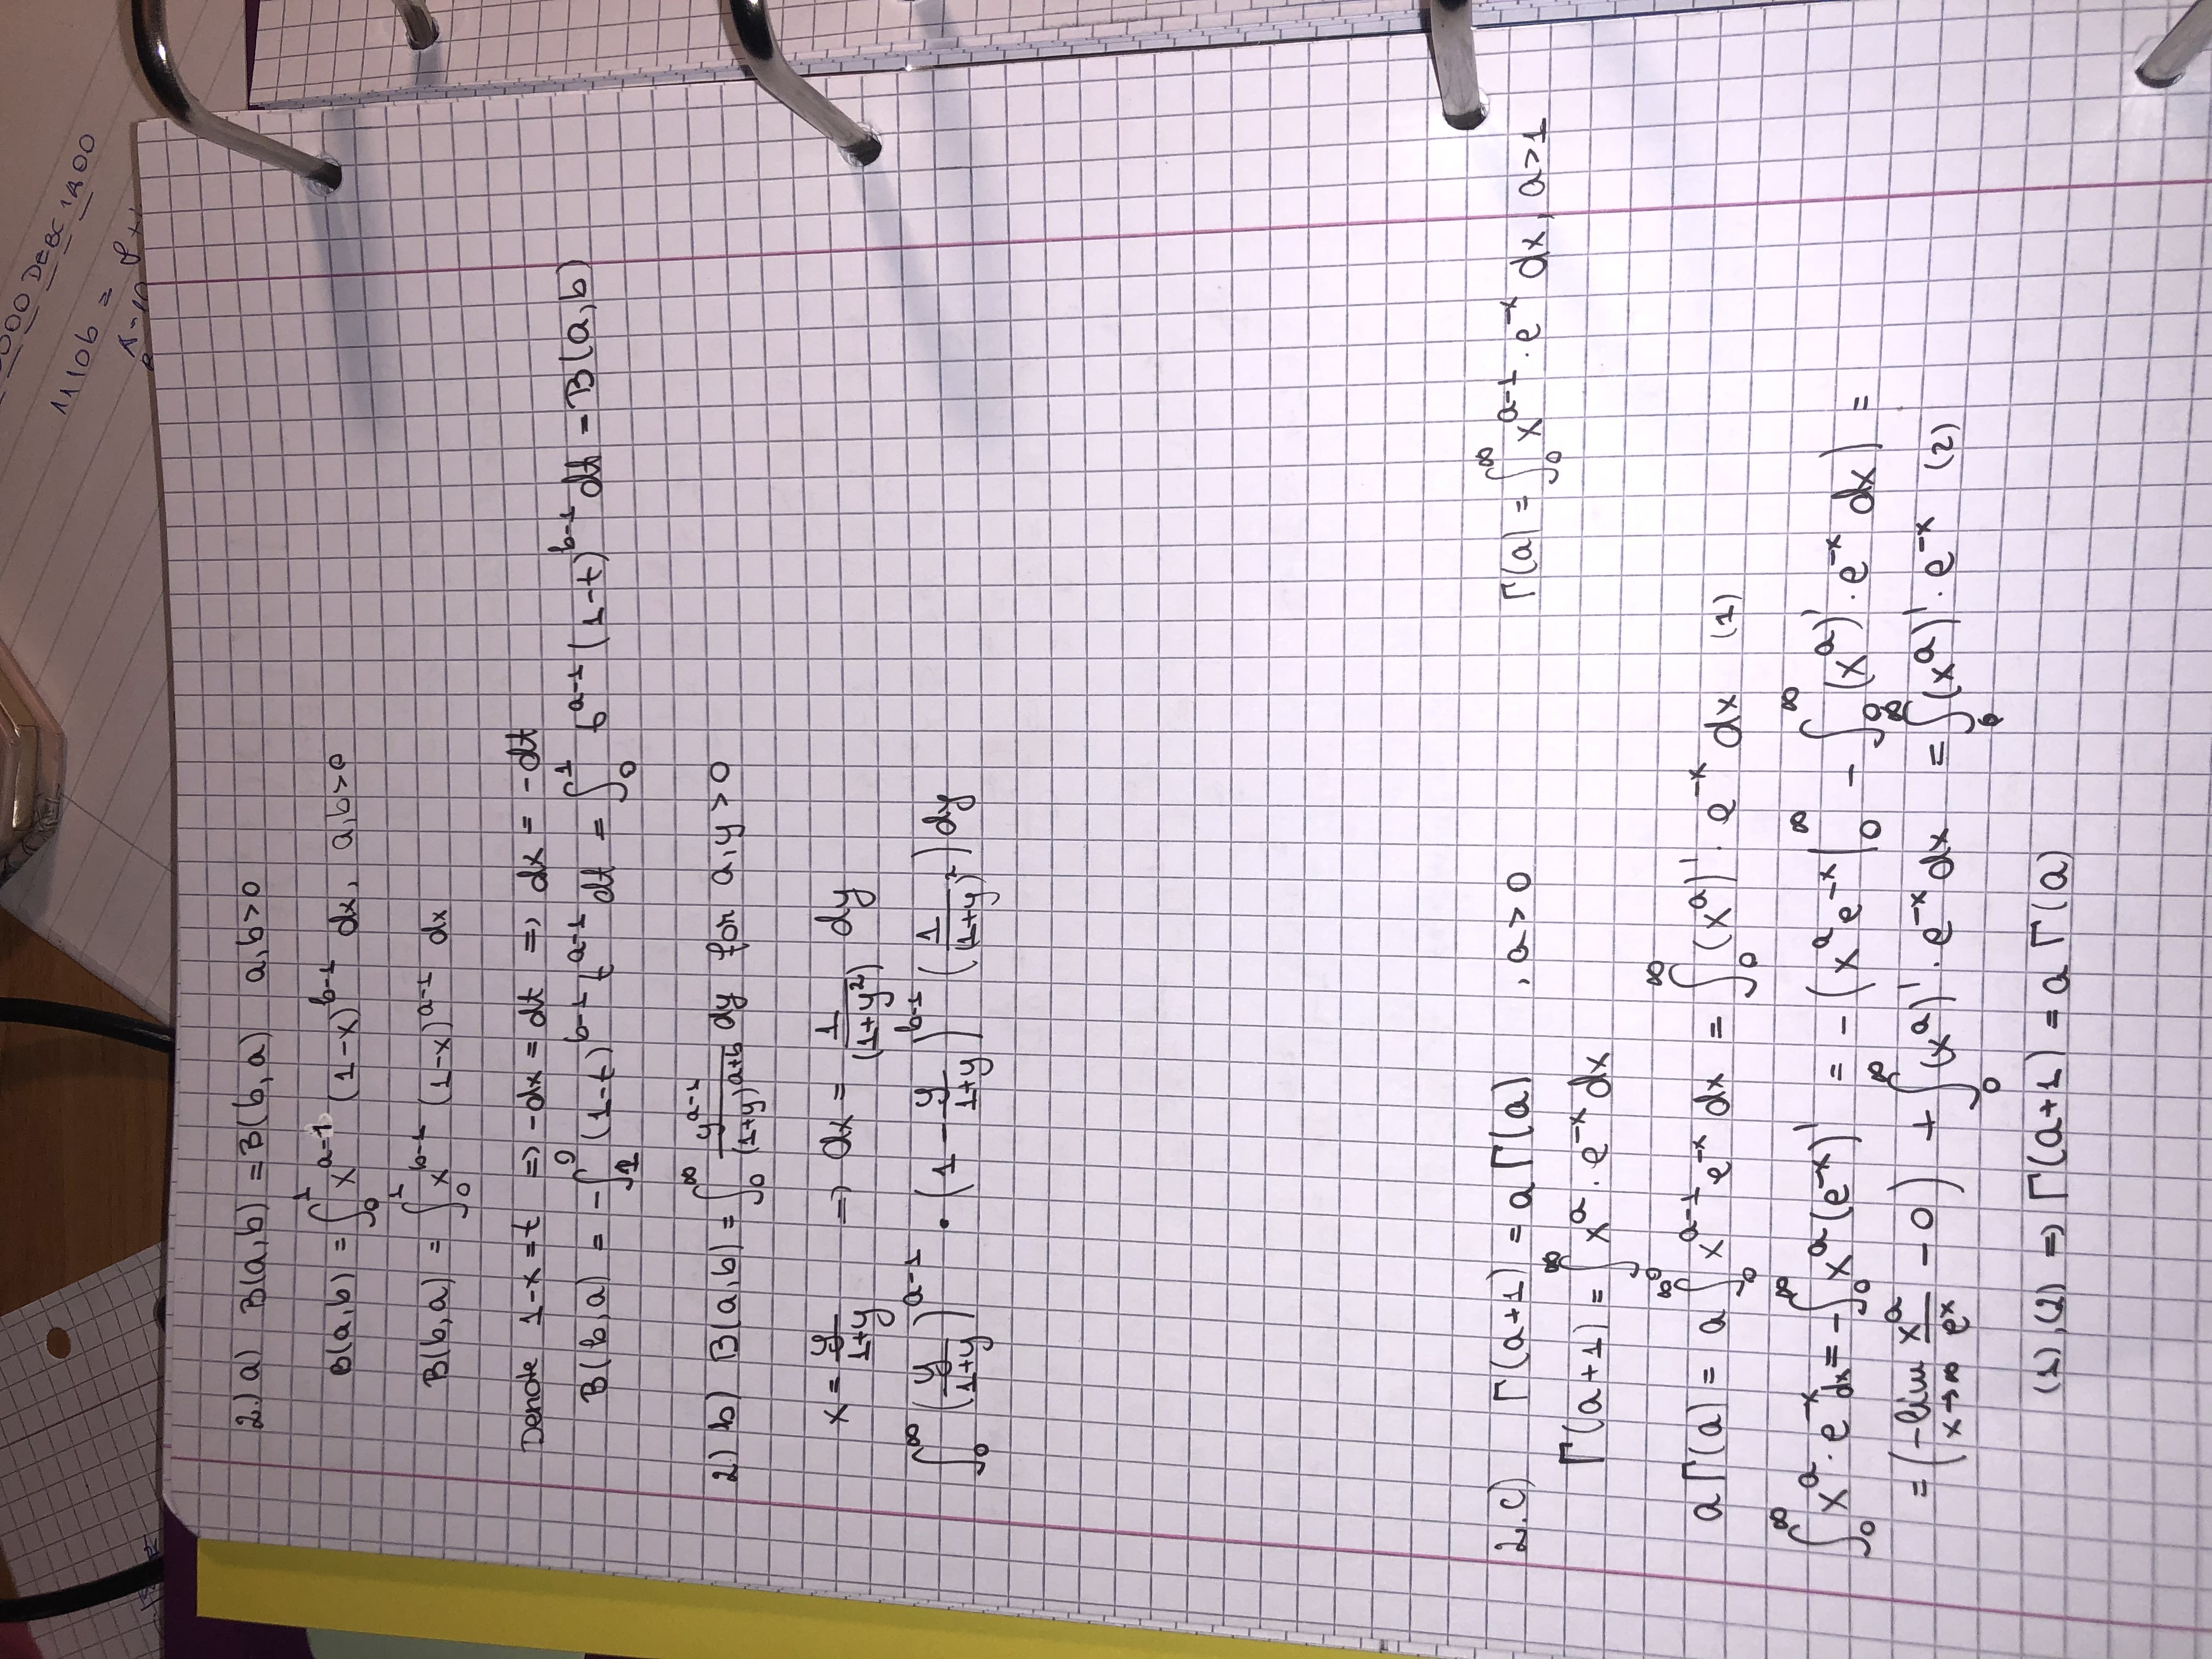 000 DEBC 1A00
1110b =
2.) a) B(a,b) = B(b,a) a,b>0
B(a,b) = ∫₀¹ x^(a-1) (1-x)^(b-1) dx, a,b>0
B(b,a) = ∫₀¹ x^(b-1) (1-x)^(a-1) dx
Denote 1-x=t => -dx = dt => dx = -dt
B(b,a) = -∫₁⁰ (1-t)^(b-1) t^(a-1) dt = ∫₀¹ t^(a-1) (1-t)^(b-1) dt = B(a,b)
2) b) B(a,b) = ∫₀^∞ y^(a-1)/(1+y)^(a+b) dy for a,y>0
x = y/(1+y) => dx = 1/(1+y²) dy
∫₀^∞ (y/(1+y))^(a-1) · (1 - y/(1+y))^(b-1) (1/(1+y)²) dy
2.c) Γ(a+1) = a Γ(a) , a>0 Γ(a) = ∫₀^∞ x^(a-1) · e^(-x) dx, a>1
Γ(a+1) = ∫₀^∞ x^a · e^(-x) dx
a Γ(a) = a ∫₀^∞ x^(a-1) e^(-x) dx = ∫₀^∞ (x^a)' · e^(-x) dx (1)
∫₀^∞ x^a · e^(-x) dx = -∫₀^∞ x^a (e^(-x))' = -(x^a e^(-x) |₀^∞ - ∫₀^∞ (x^a)' · e^(-x) dx) =
= (-lim x→∞ x^a/e^x - 0) + ∫₀^∞ (x^a)' · e^(-x) dx = ∫₀^∞ (x^a)' · e^(-x) (2)
(1),(2) => Γ(a+1) = a Γ(a)